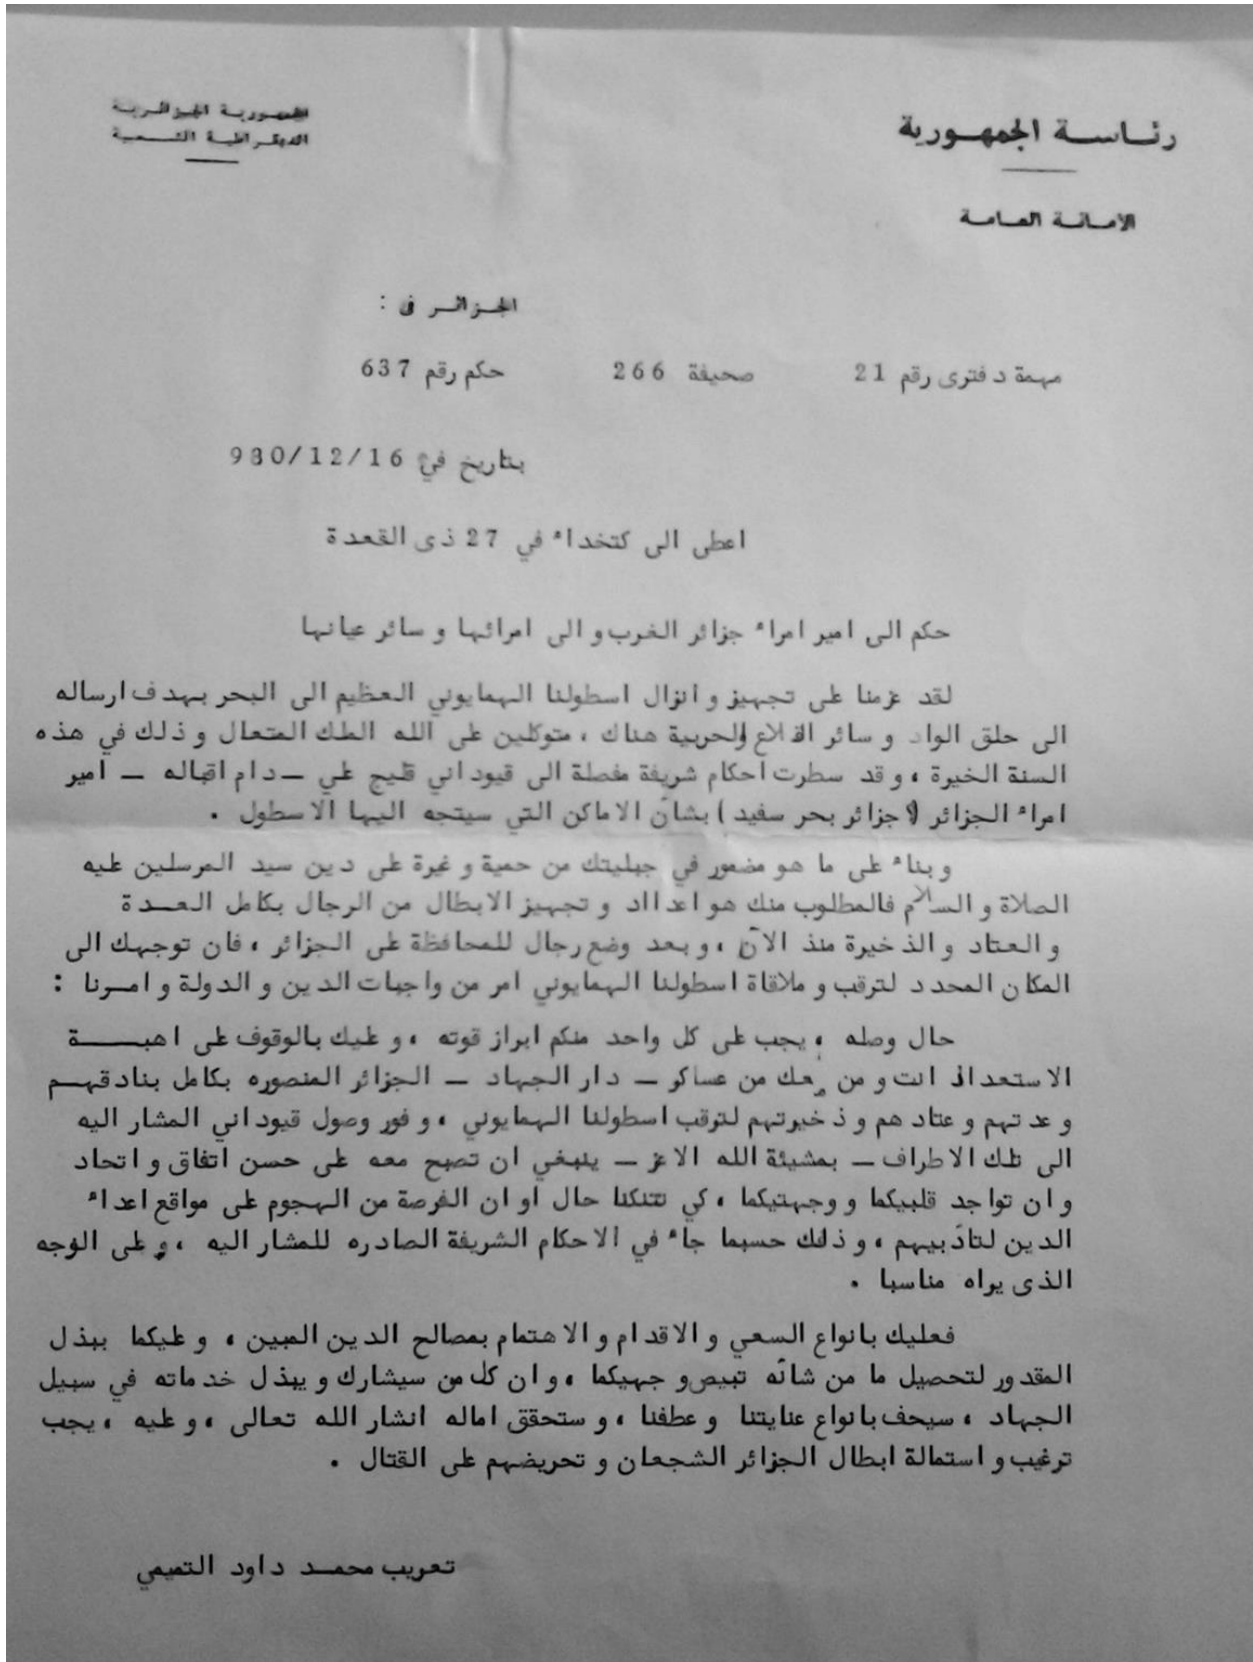 الجمهورية الجزائرية
الديمقراطية الشعبية
رئاسة الجمهورية
الامانة العامة
الجزائر في :
مهمة دفترى رقم 21 صحيفة 266 حكم رقم 637
بتاريخ في 980/12/16
اعطى الى كتخداء في 27 ذى القعدة
حكم الى امير امراء جزائر الغرب والى امرائها و سائر عيانها
لقد عزمنا على تجهيز و انزال اسطولنا الهمايوني العظيم الى البحر بهدف ارساله
الى حلق الواد و سائر القلاع الحربية هناك ، متوكلين على الله الملك المتعال و ذلك في هذه
السنة الخيرة ، و قد سطرت احكام شريفة مفصلة الى قيوداني قليج علي – دام اقباله – امير
امراء الجزائر ( جزائر بحر سفيد ) بشأن الاماكن التي سيتجه اليها الاسطول .
و بناء على ما هو مضمور في جبليتك من حمية و غيرة على دين سيد المرسلين عليه
الصلاة و السلام فالمطلوب منك هو اعدااد و تجهيز الابطال من الرجال بكامل العدة
و العتاد و الذخيرة منذ الآن ، و بعد وضع رجال للمحافظة على الجزائر ، فان توجهك الى
المكان المحدد لترقب و ملاقاة اسطولنا الهمايوني امر من واجبات الدين و الدولة و امرنا :
حال وصله ، يجب على كل واحد منكم ابراز قوته ، و عليك بالوقوف على اهبة
الاستعداد انت و من معك من عساكر – دار الجهاد – الجزائر المنصوره بكامل بنادقهم
و عدتهم و عتادهم و ذخيرتهم لترقب اسطولنا الهمايوني ، و فور وصول قيوداني المشار اليه
الى تلك الاطراف – بمشيئة الله الاعز – ينبغي ان تصبح معه على حسن اتفاق و اتحاد
و ان تواجد قلبيكما و وجهتيكما ، كي تتنكنا حال او ان الفرصة من الهجوم على مواقع اعداء
الدين لتأدبيهم ، و ذلك حسبما جاء في الاحكام الشريفة الصادره للمشار اليه ، و على الوجه
الذى يراه مناسبا .
فعليك بانواع السعي و الاقدام و الاهتمام بمصالح الدين المبين ، و عليكما ببذل
المقدور لتحصيل ما من شأنه تبيص و جهيكما ، و ان كل من سيشارك و يبذل خدماته في سبيل
الجهاد ، سيحف بانواع عنايتنا و عطفنا ، و ستحقق اماله انشار الله تعالى ، و عليه ، يجب
ترغيب و استمالة ابطال الجزائر الشجعان و تحريضهم على القتال .
تعريب محمد داود التميمي